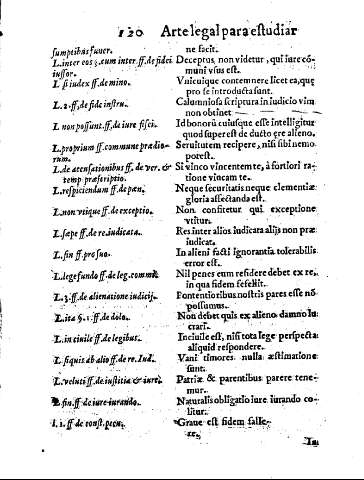 120 Arte legal para estudiar
sumptibus funer. ne facit.
L. inter eos §. cum inter ff. de fidei Deceptus non videtur, qui iure cõ-
iussor. muni vsus est.
L. si iudex ff. de mino. Vnicuique contemnere licet ea, quę
pro se introducta sunt.
L. 2. ff. de fide instru. Calumniosa scriptura in iudicio vim
non obtinet
L. non possunt. ff. de iure fisci. Id bonorũ cuiusque esse intelligitur
quod superest de ducto ęre alieno.
L. proprium ff. commune prædio- Seruitutem recipere, nisi sibi nemo
rum. potest.
L. de ætensationibus ff. de ver. & Si vinco vincentem te, à fortiori ra-
temp præscriptio. tione vincam te.
L. respiciendum ff. de pœn. Neque securitatis neque clementiæ
gloria affectanda est.
L. non vtique ff. de exceptio. Non confitetur qui exceptione
vtitur.
L. sæpe ff. de re iudicata. Res inter alios iudicata alijs non præ
iudicat.
L. fin ff. pro suo. In alieni facti ignorantia tolerabilis
error est.
L. lege fundo ff. de leg. commis. Nil penes eum residere debet ex re,
in qua fidem fefellit.
L. 3. ff. de alienatione iudicij. Potentioribus nostris pares esse nõ
possumus.
L. ita §. 1. ff. de dolo. Non debet quis ex alieno damno lu
crari.
L. in ciuile ff. de legibus. Inciuile est, nisi tota lege perspecta
aliquid respondere.
L. si quis ab alio ff. de re. Iud. Vani timores nulla æstimatione
sunt.
L. veluti ff. de iustitia & iure. Patriæ & parentibus parere tene-
mur.
L. fin. ff. de iure iurando. Naturalis obligatio iure iurando co-
litur.
l. 1. ff. de const. pecu. Graue est fidem falle-
re.
In